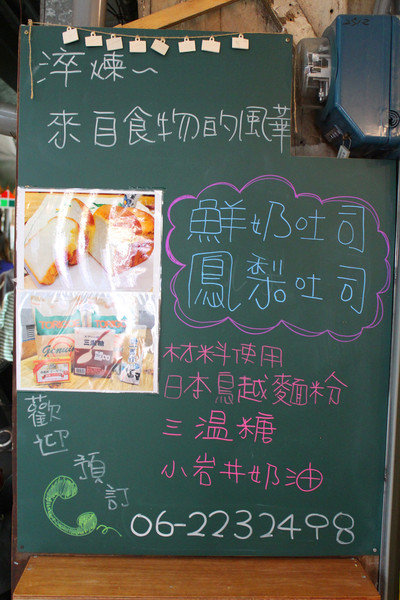 淬煉~
來自食物的風華
鮮奶吐司
鳳梨吐司
材料使用
日本鳥越麵粉
三溫糖
小岩井奶油
歡迎預訂
06-2232498